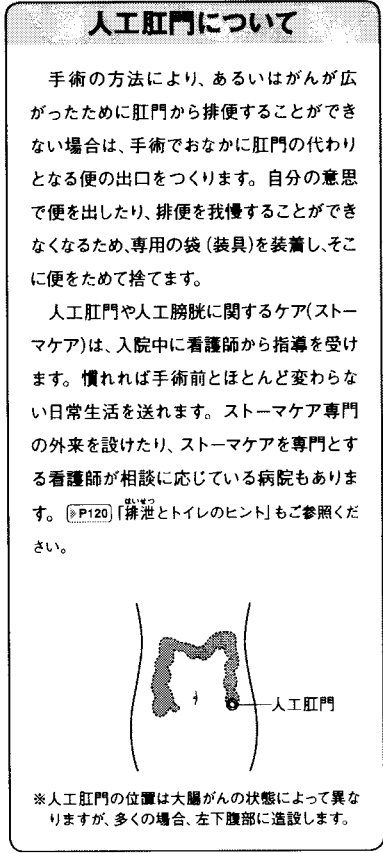 人工肛門について
手術の方法により、あるいはがんが広
がったために肛門から排便することができ
ない場合は、手術でおなかに肛門の代わり
となる便の出口をつくります。自分の意思
で便を出したり、排便を我慢することができ
なくなるため、専用の袋(装具)を装着し、そこ
に便をためて捨てます。
人工肛門や人工膀胱に関するケア(ストー
マケア)は、入院中に看護師から指導を受け
ます。慣れれば手術前とほとんど変わらな
い日常生活を送れます。ストーマケア専門
の外来を設けたり、ストーマケアを専門とす
る看護師が相談に応じている病院もありま
はいせつ
す。▶P120「排泄とトイレのヒント」もご参照くだ
さい。
人工肛門
※人工肛門の位置は大腸がんの状態によって異な
りますが、多くの場合、左下腹部に造設します。